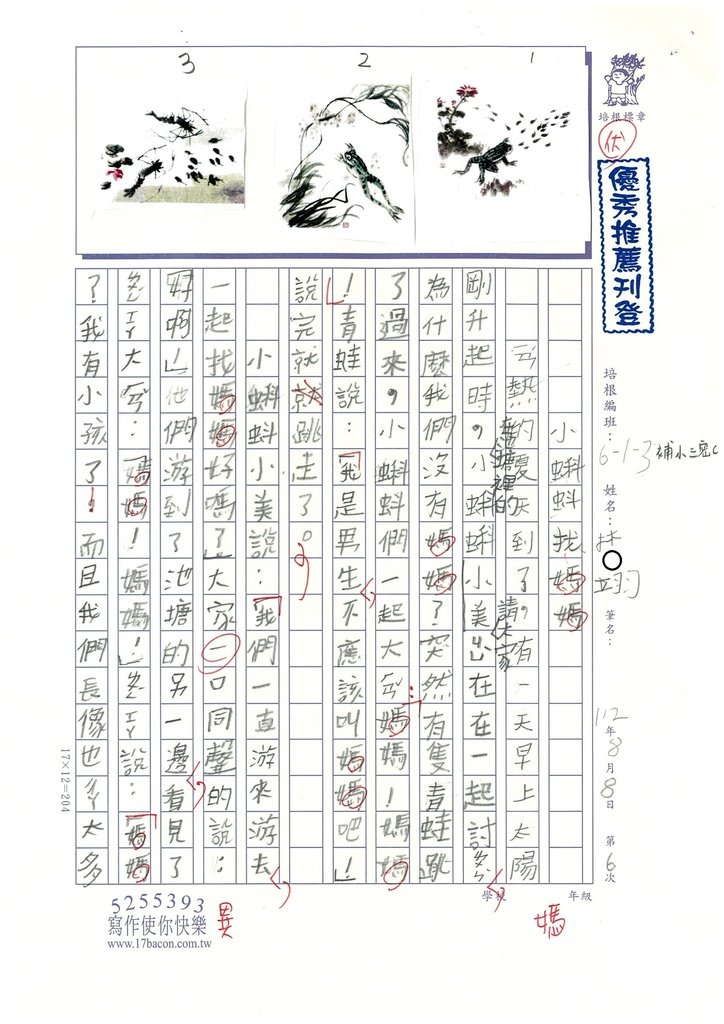 3
2
1
培根標章
伏
優秀推薦刊登
培根編班：6-1-3補小三寬C
姓名：林 翊
筆名：
112年8月8日 第6次
學校 年級
小蝌蚪找媽媽
ㄢ熱的夏天到了，有一天早上太陽
剛升起時，小蝌蚪小美出在在一起討ㄌㄨㄣ
池塘裡的
請大家
為什麼我們沒有媽媽？突然有隻青蛙跳
了過來，小蝌蚪們一起大ㄏㄢ：媽媽！媽媽
！」青蛙說：「我是男生不應該叫媽媽吧！」
說完就就跳走了。
小蝌蚪小美說：「我們一直游來游去
一起找媽媽好嗎？」大家一口同聲的說：
好啊」他們游到了池塘的另一邊看見了
ㄒㄧㄚ大ㄏㄢ：「媽媽！媽媽！」ㄒㄧㄚ說：「媽媽
？我有小孩了！而且我們長像也ㄔㄚ太多
17×12=204
5255393
寫作使你快樂
www.17bacon.com.tw
異
媽